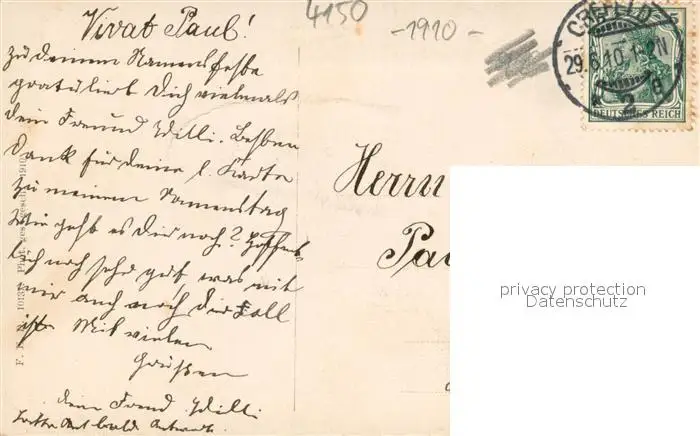 Vivat Paul!
zu deinem Namensfeste
gratuliert Dich vielmals
dein Freund Willi. Besten
Dank für deine l. Karte
zu meinem Namenstag
Wie geht es dir noch? Hoffent-
lich noch sehr gut was mit
mir auch noch der Fall
ist. Mit vielen
Grüßen
dein Freund Willi
bald Antwort.
4150
-1910-
CREFELD
29.6.10.1-2N
2
DEUTSCHES REICH
Herrn
Pa
privacy protection
Datenschutz
Phot. ges. gesch. 1910